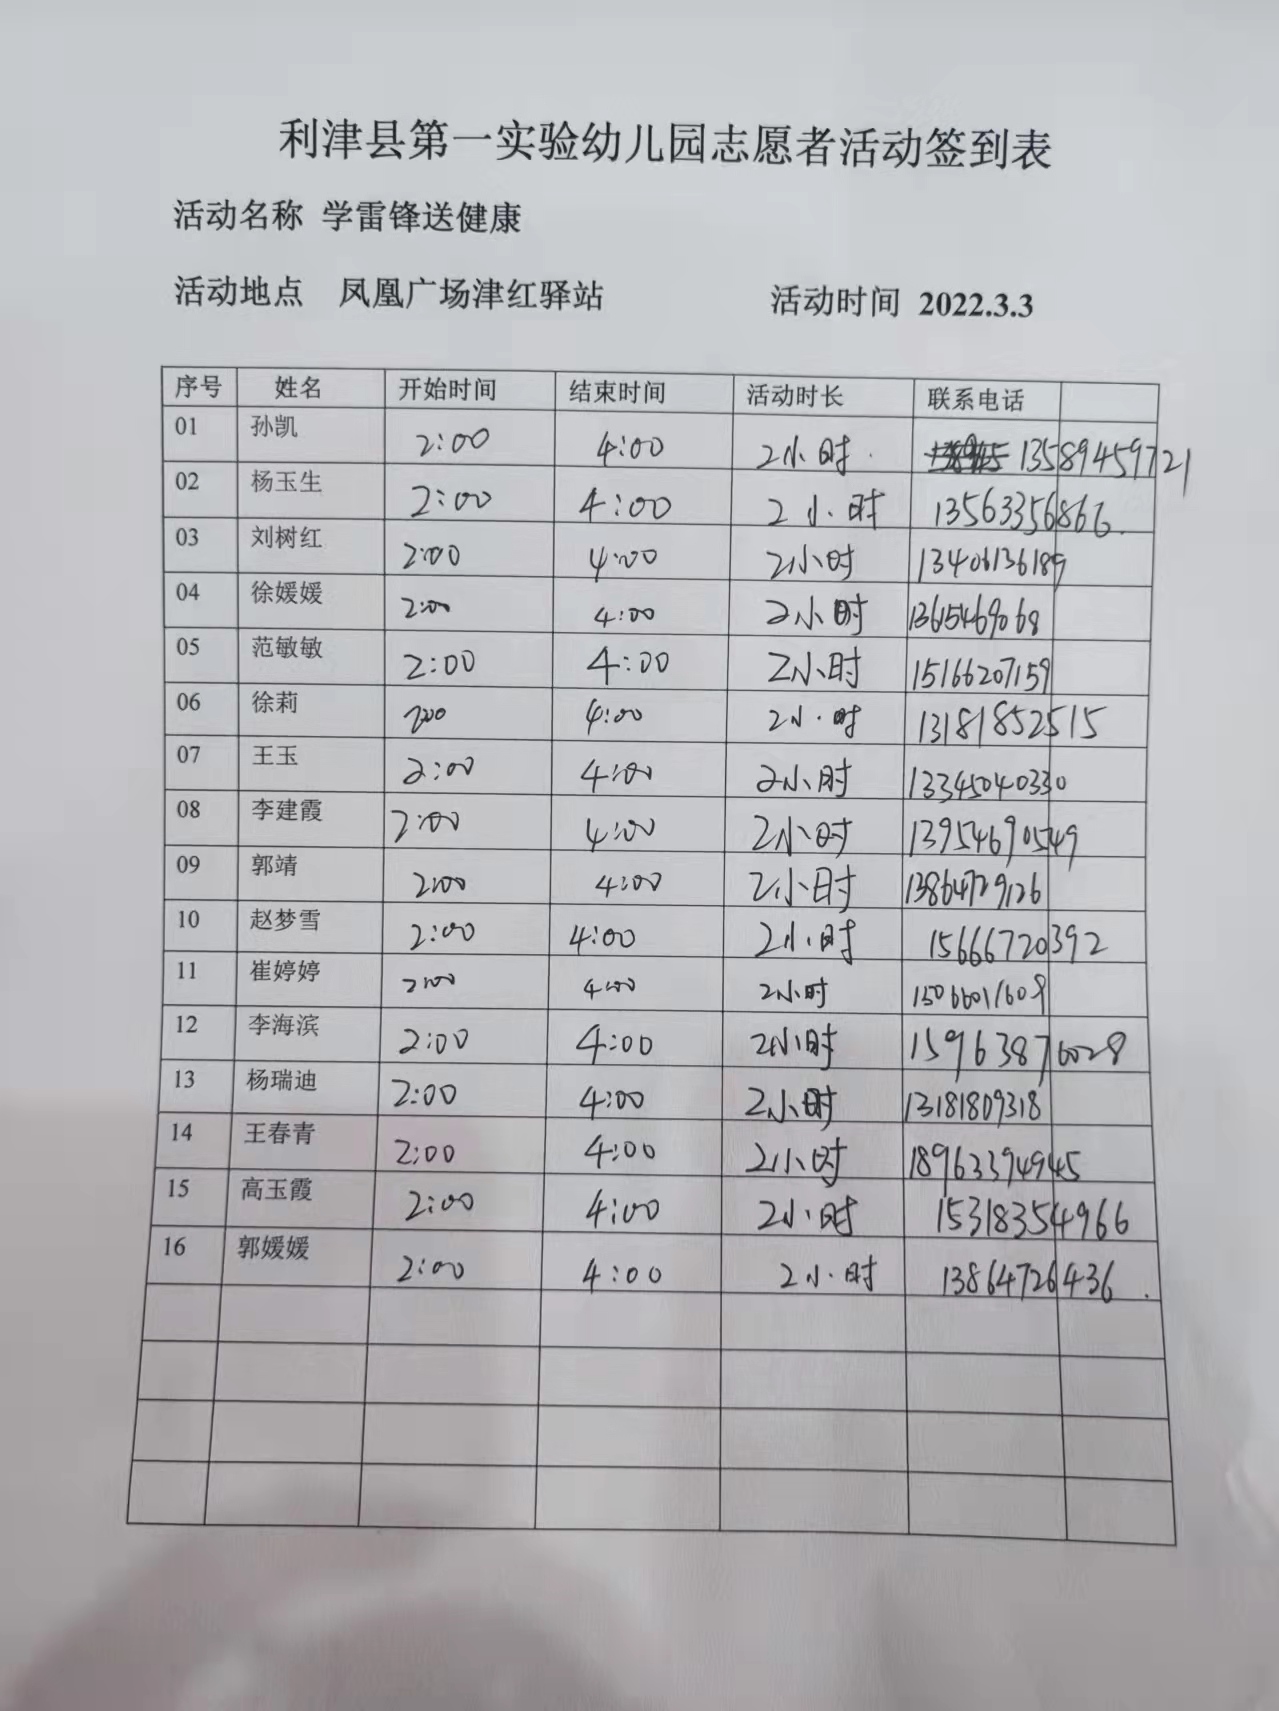 利津县第一实验幼儿园志愿者活动签到表
活动名称 学雷锋送健康
活动地点 凤凰广场津红驿站 活动时间 2022.3.3
序号 姓名 开始时间 结束时间 活动时长 联系电话
01 孙凯 2:00 4:00 2小时 13589459721
02 杨玉生 2:00 4:00 2小时 13563356866
03 刘树红 2:00 4:00 2小时 13406136189
04 徐媛媛 2:00 4:00 2小时
05 范敏敏 2:00 4:00 2小时 15166207159
06 徐莉 2:00 4:00 2小时 13181852515
07 王玉 2:00 4:00 2小时 13345040330
08 李建霞 2:00 4:00 2小时 13954690549
09 郭靖 2:00 4:00 2小时 13864729126
10 赵梦雪 2:00 4:00 2小时 15666720392
11 崔婷婷 2:00 4:00 2小时
12 李海滨 2:00 4:00 2小时 15963876028
13 杨瑞迪 2:00 4:00 2小时 13181809318
14 王春青 2:00 4:00 2小时 18963394945
15 高玉霞 2:00 4:00 2小时 15318354966
16 郭媛媛 2:00 4:00 2小时 13864726436